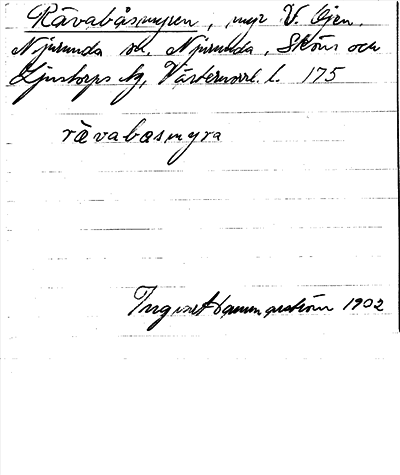 Rävabåsmyren, myr V. Öjen.
Njurunda sn, Njurunda, Sköns och
Ljustorps tg, Västernorrl. l. 175
rävabasmyra
Ingvar Hammarström 1932